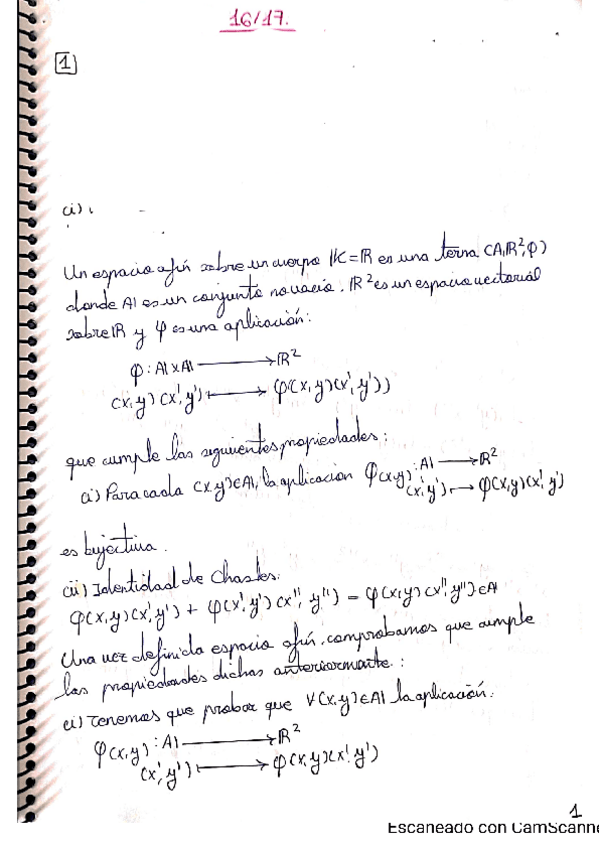 16/17.
1
(i).
Un espacio afín sobre un cuerpo K=R es una terna (A,R²,φ)
donde A es un conjunto no vacío, R² es un espacio vectorial
sobre R y φ es una aplicación:
φ: A x A → R²
(x,y) (x',y') ↦ φ((x,y)(x',y'))
que cumple las siguientes propiedades:
(i) Para cada (x,y)∈A, la aplicación φ(x,y): A → R²
(x',y') ↦ φ(x,y)(x',y')
es bijectiva.
(ii) Identidad de Chasles:
φ(x,y)(x',y') + φ(x',y')(x'',y'') = φ(x,y)(x'',y'') ∈ A
Una vez definida espacio afín, comprobamos que cumple
las propiedades dichas anteriormente:
(i) Tenemos que probar que ∀(x,y)∈A la aplicación:
φ(x,y): A → R²
(x',y') ↦ φ(x,y)(x',y')
1
Escaneado con CamScanne